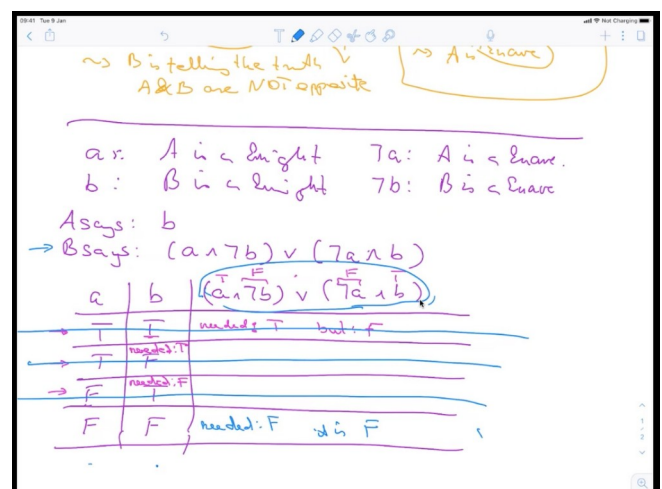 09:41 Tue 9 Jan
Not Charging
~> B is telling the truth
A&B are NOT opposite
~> A is knave
a: A is a knight ¬a: A is a knave.
b: B is a knight ¬b: B is a knave
A says: b
→ B says: (a ∧ ¬b) ∨ (¬a ∧ b)
T F F T
a b (a ∧ ¬b) ∨ (¬a ∧ b)
→ T T needed: T but: F
needed: T
→ T F
needed: F
→ F T
F F needed: F it is F
1
2